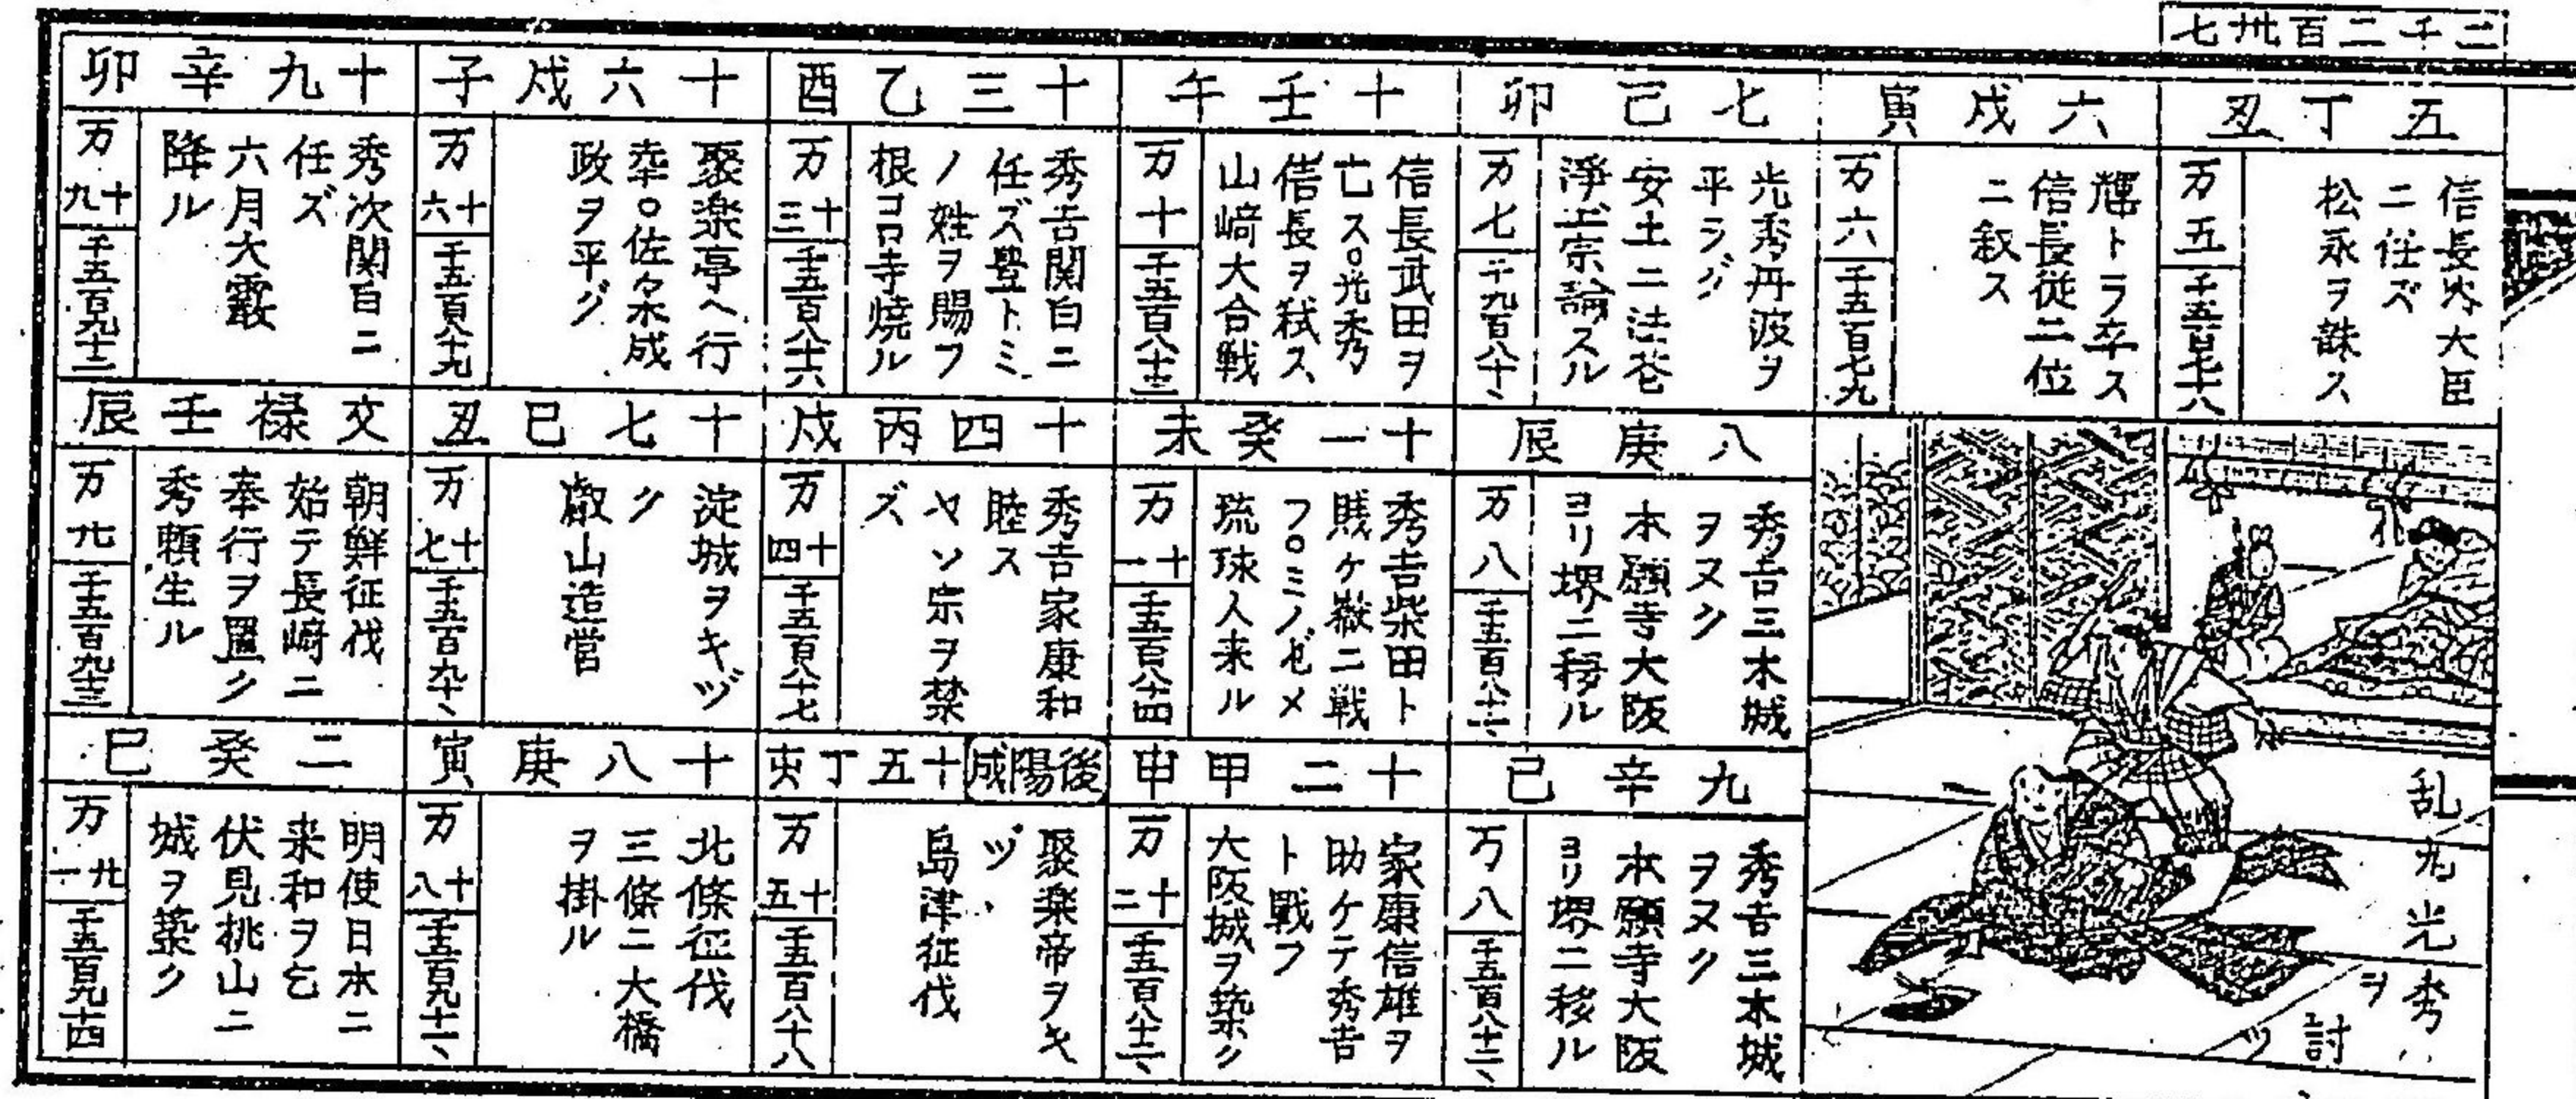 二千二百卅七
五丁丑
信長内大臣
ニ任ズ
松永ヲ誅ス
万五
千五百七十八
六戊寅
輝トラ卒ス
信長従二位
ニ叙ス
万六
千五百七十九
七己卯
光秀丹波ヲ
平ラグ
安土ニ法花
淨土宗論スル
万七
千九百八十、
八庚辰
秀吉三木城
ヲヌク
本願寺大阪
ヨリ堺ニ移ル
万八
千五百八十二、
九辛巳
秀吉三木城
ヲヌク
本願寺大阪
ヨリ堺ニ移ル
万八
千五百八十二、
乱丸光秀
ヲ
討
ツ
十壬午
信長武田ヲ
亡ス○光秀
信長ヲ弑ス
山﨑大合戦
万十
千五百八十三
十一癸未
秀吉柴田ト
賎ケ嶽ニ戦
フ○ミノゼメ
琉球人来ル
万十一
千五百八十四
十二甲申
家康信雄ヲ
助ケテ秀吉
ト戰フ
大阪城ヲ築ク
万十二
十三乙酉
秀吉関白ニ
任ズ豊トミ
ノ姓ヲ賜フ
根コロ寺焼ル
万十三
千五百八十六
十四丙戌
秀吉家康和
睦ス
ヤソ宗ヲ禁
ズ
万十四
千五百八十七
後陽成
十五丁亥
聚楽帝ヲキ
ヅ、
島津征伐
万十五
千五百八十八
十六戊子
聚楽亭ヘ行
幸○佐々木成
政ヲ平グ
万十六
千五百八十九
十七巳丑
淀城ヲキヅ
ク
叡山造営
万十七
千五百九十、
十八庚寅
北條征伐
三條ニ大橋
ヲ掛ル
万十八
千五百九十一、
十九辛卯
秀次関白ニ
任ズ
六月大霰
降ル
万十九
千五百九十二
文禄壬辰
朝鮮征伐
始テ長﨑ニ
奉行ヲ置ク
秀頼生ル
万廿
千五百九十三
二癸巳
明使日本ニ
来和ヲ乞
伏見桃山ニ
城ヲ築ク
万廿一
千五百九十四